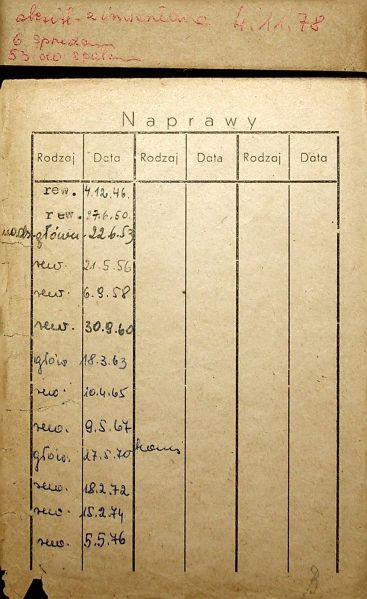 4.11.78
6 sprzedam
53 do
Naprawy
Rodzaj Data Rodzaj Data Rodzaj Data
rew. 4.12.46.
rew. 27.6.50.
główn. 22.6.53
rew. 21.5.56
rew. 6.9.58
rew. 30.9.60
główn 18.3.63
rew. 10.4.65
rew. 9.5.67
główn. 27.5.70
rew. 18.2.72
rew. 15.2.74
rew. 5.5.76